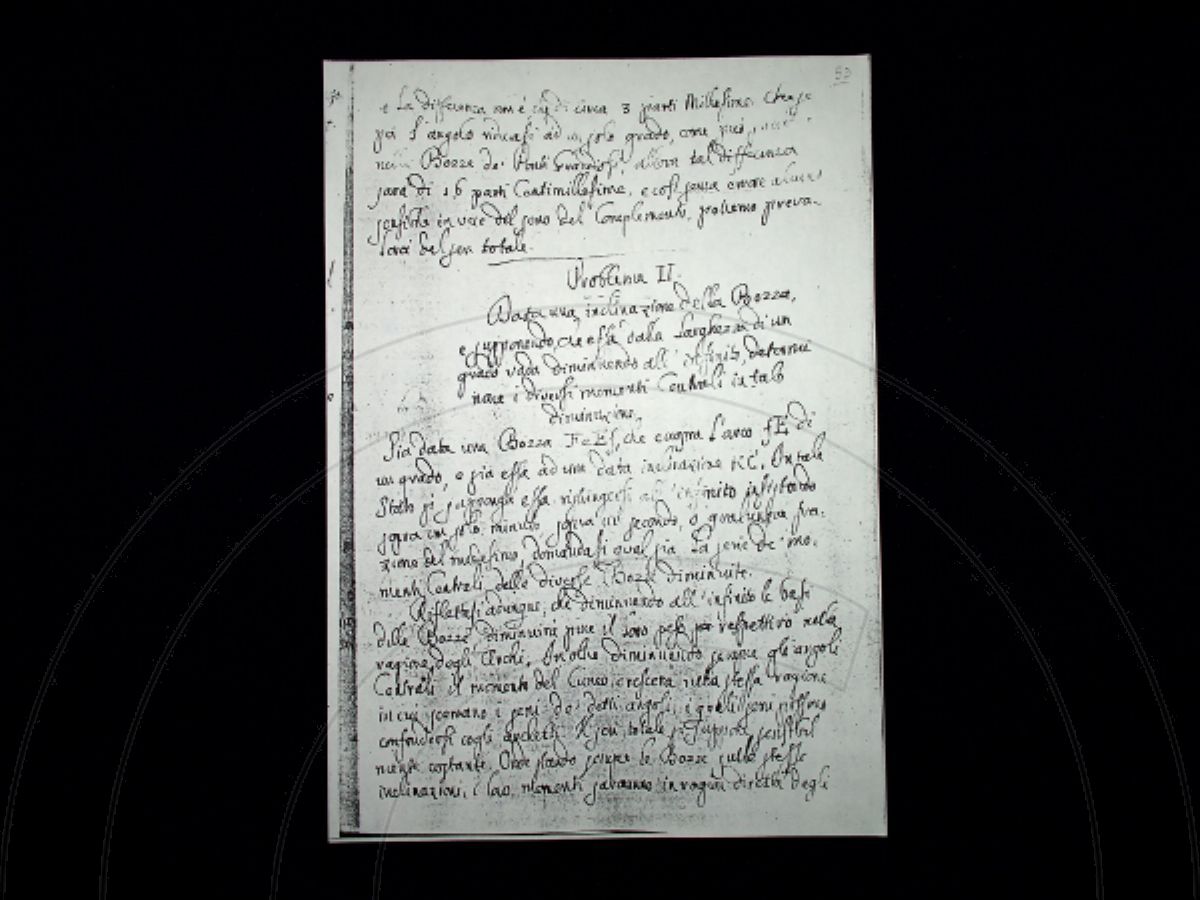 53
e la differenza non è che di circa 3 parti Millesime. Che se
poi l'angolo riducasi ad un solo grado, come
nelle Bozze de' Ponti Francesi, allora tal differenza
sara di 16 parti Centimillesime, e cosi senza errore
sensibile in vece del seno del Complemento, potremo preva-
lerci del sen totale.
Problema II.
Data una inclinazione della Bozza,
e supponendo, che essa dalla larghezza di un
grado vada diminuendo all'infinito, determi
nare i diversi momenti Centrali in tale
diminuzione.
Sia data una Bozza FeEf, che occupa l'arco fE di
un grado, e sia essa ad una data inclinazione KC. In tale
Stato si supponga essa ristringersi all'infinito insistendo
sopra un solo minuto sopra un secondo, o qualunque fra-
zione del medesimo, domandasi qual sia la serie de' mo-
menti Centrali delle diverse Bozze diminuite.
Riflettasi adunque, che diminuendo all'infinito le basi
delle Bozze, diminuirà pure il loro peso rispettivo nella
ragione degli Archi. In oltre diminuendo sempre gli angoli
Centrali il momento del Cuneo crescera nella stessa ragione
in cui scemano i seni de' detti angoli, i quali seni possono
confondersi cogli archetti. Il sen totale si suppone sensibil
mente costante. Onde stando sempre le Bozze sulle stesse
inclinazioni, i loro momenti saranno in ragion diretta degli